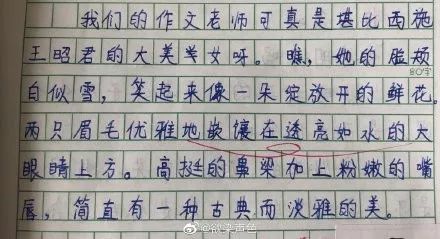 我们的作文老师可真是堪比西施
王昭君的大美女呀。瞧，她的脸颊
80字
白似雪，笑起来像一朵绽放开的鲜花。
两只眉毛优雅地嵌镶在透亮如水的大
眼睛上方。高挺的鼻梁加上粉嫩的嘴
唇，简直有一种古典而淡雅的美。
@欲染声色